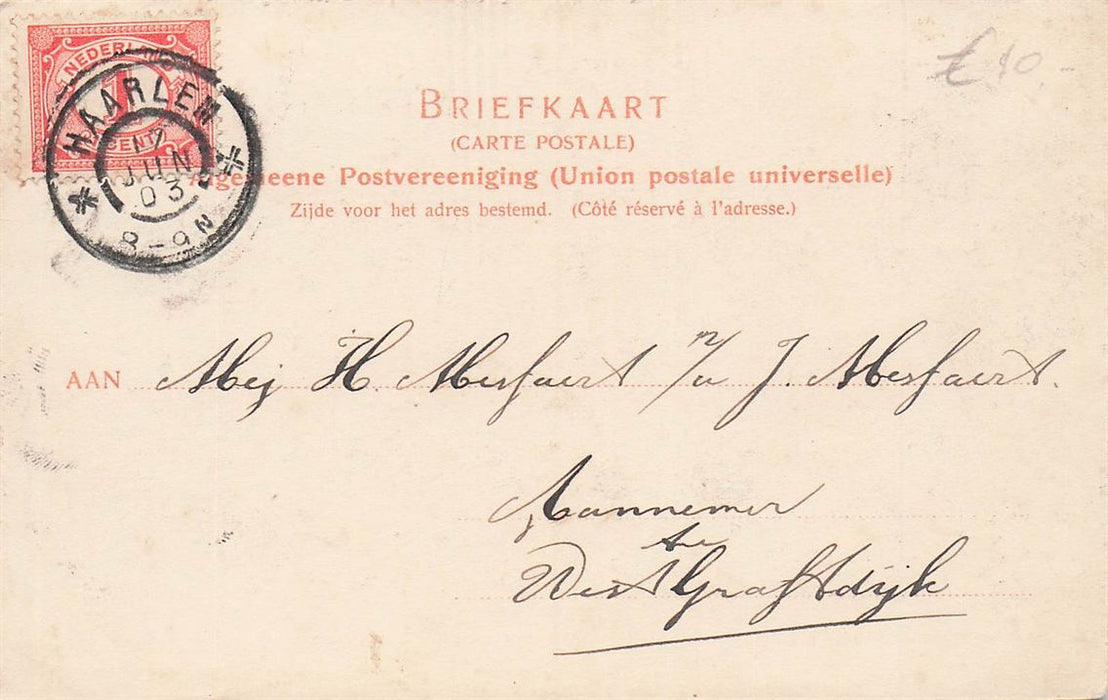 NEDERLAND
1
CENT
HAARLEM
17
JUN
03
8-9N
€ 10.-
BRIEFKAART
(CARTE POSTALE)
Algemeene Postvereeniging (Union postale universelle)
Zijde voor het adres bestemd. (Côté réservé à l'adresse.)
AAN Mej H. Mesfaert p/a J. Mesfaert.
Aannemer
te
West Graftdijk